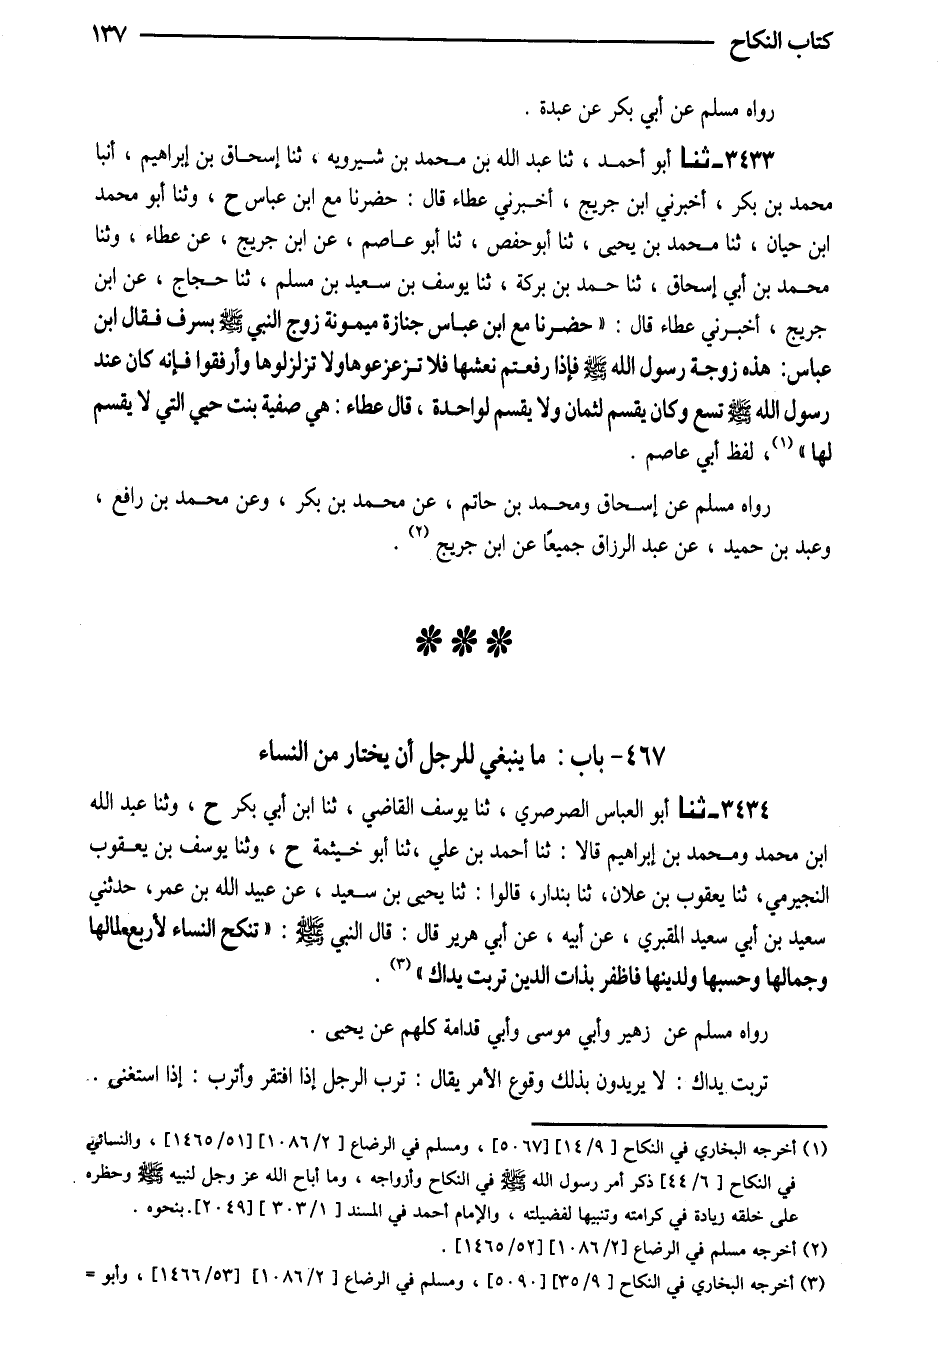 كتاب النكاح ١٣٧
رواه مسلم عن أبي بكر عن عبدة .
٣٤٣٣ـ ثنا أبو أحمد ، ثنا عبد الله بن محمد بن شيرويه ، ثنا إسحاق بن إبراهيم ، أنبا
محمد بن بكر ، أخبرني ابن جريج ، أخبرني عطاء قال : حضرنا مع ابن عباس ح ، وثنا أبو محمد
ابن حيان ، ثنا محمد بن يحيى ، ثنا أبو حفص ، ثنا أبو عاصم ، عن ابن جريج ، عن عطاء ، وثنا
محمد بن أبي إسحاق ، ثنا حمد بن بركة ، ثنا يوسف بن سعيد بن مسلم ، ثنا حجاج ، عن ابن
جريج ، أخبرني عطاء قال : « حضرنا مع ابن عباس جنازة ميمونة زوج النبي ﷺ بسرف فقال ابن
عباس: هذه زوجة رسول الله ﷺ فإذا رفعتم نعشها فلا تزعزعوها ولا تزلزلوها وأرفقوا فإنه كان عند
رسول الله ﷺ تسع وكان يقسم لثمان ولا يقسم لواحدة ، قال عطاء : هي صفية بنت حيي التي لا يقسم
لها » (١)، لفظ أبي عاصم .
رواه مسلم عن إسحاق ومحمد بن حاتم ، عن محمد بن بكر ، وعن محمد بن رافع ،
وعبد بن حميد ، عن عبد الرزاق جميعًا عن ابن جريج (٢) .
❋ ❋ ❋
٤٦٧- باب : ما ينبغي للرجل أن يختار من النساء
٣٤٣٤ـ ثنا أبو العباس الصرصري ، ثنا يوسف القاضي ، ثنا ابن أبي بكر ح ، وثنا عبد الله
ابن محمد ومحمد بن إبراهيم قالا : ثنا أحمد بن علي ،ثنا أبو خيثمة ح ، وثنا يوسف بن يعقوب
النجيرمي، ثنا يعقوب بن علان، ثنا بندار، قالوا : ثنا يحيى بن سعيد ، عن عبيد الله بن عمر، حدثني
سعيد بن أبي سعيد المقبري ، عن أبيه ، عن أبي هرير قال : قال النبي ﷺ : « تنكح النساء لأربع لمالها
وجمالها وحسبها ولدينها فاظفر بذات الدين تربت يداك » (٣) .
رواه مسلم عن زهير وأبي موسى وأبي قدامة كلهم عن يحيى .
تربت يداك : لا يريدون بذلك وقوع الأمر يقال : ترب الرجل إذا افتقر وأترب : إذا استغنى . .
(١) أخرجه البخاري في النكاح [ ٩/ ١٤] [٥٠٦٧] ، ومسلم في الرضاع [ ٢/ ١٠٨٦] [٥١/ ١٤٦٥] ، والنسائي
في النكاح [ ٦/ ٤٤] ذكر أمر رسول الله ﷺ في النكاح وأزواجه ، وما أباح الله عز وجل لنبيه ﷺ وحظره
على خلقه زيادة في كرامته وتنبيها لفضيلته ، والإمام أحمد في المسند [ ١/ ٣٠٣ ] [٢٠٤٩].بنحوه .
(٢) أخرجه مسلم في الرضاع [٢/ ١٠٨٦] [٥٢/ ١٤٦٥] .
(٣) أخرجه البخاري في النكاح [ ٩/ ٣٥] [٥٠٩٠] ، ومسلم في الرضاع [ ٢/ ١٠٨٦] [٥٣/ ١٤٦٦] ، وأبو =